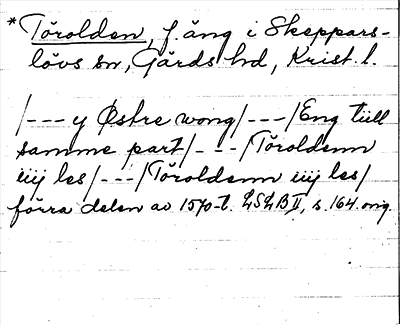 *Törolden, f. äng i Skeppars-
lövs sn, Gärds hd, Krist. l.
/---y Østre wong/---/Eng tiill
samme part/---/Töroldenn
iiij les/---/Töroldenn iiij les/
förra delen av 1570-t. LSLB II, s. 164 orig.